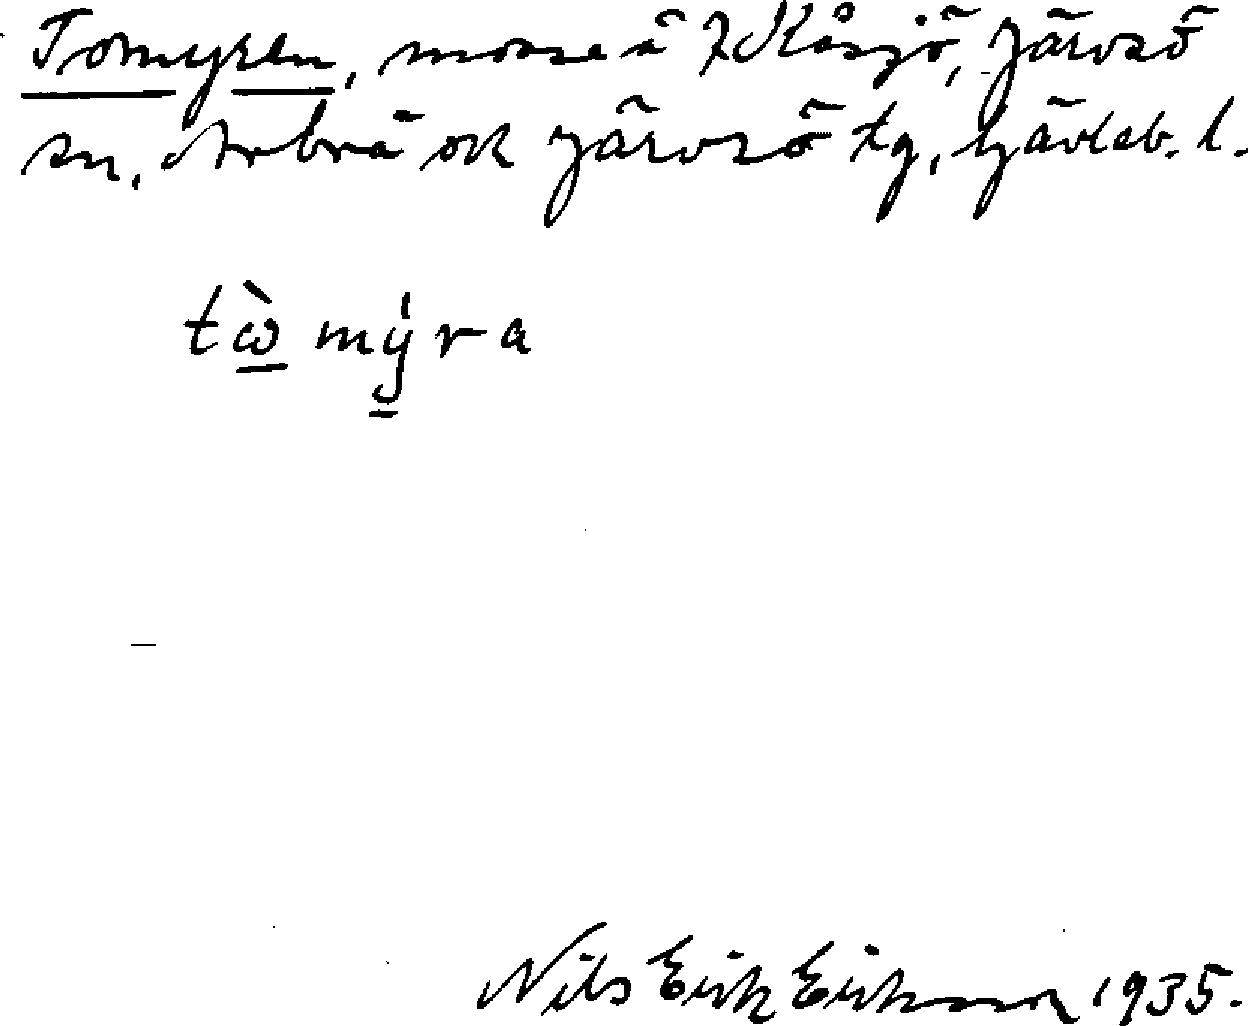 Tomyren, mosse å 7 Kåsjö, Järvsö
sn, Arbrå och Järvsö tg, Gävleb. l.
tὼmýra
Nils Erik Eriksson 1935.